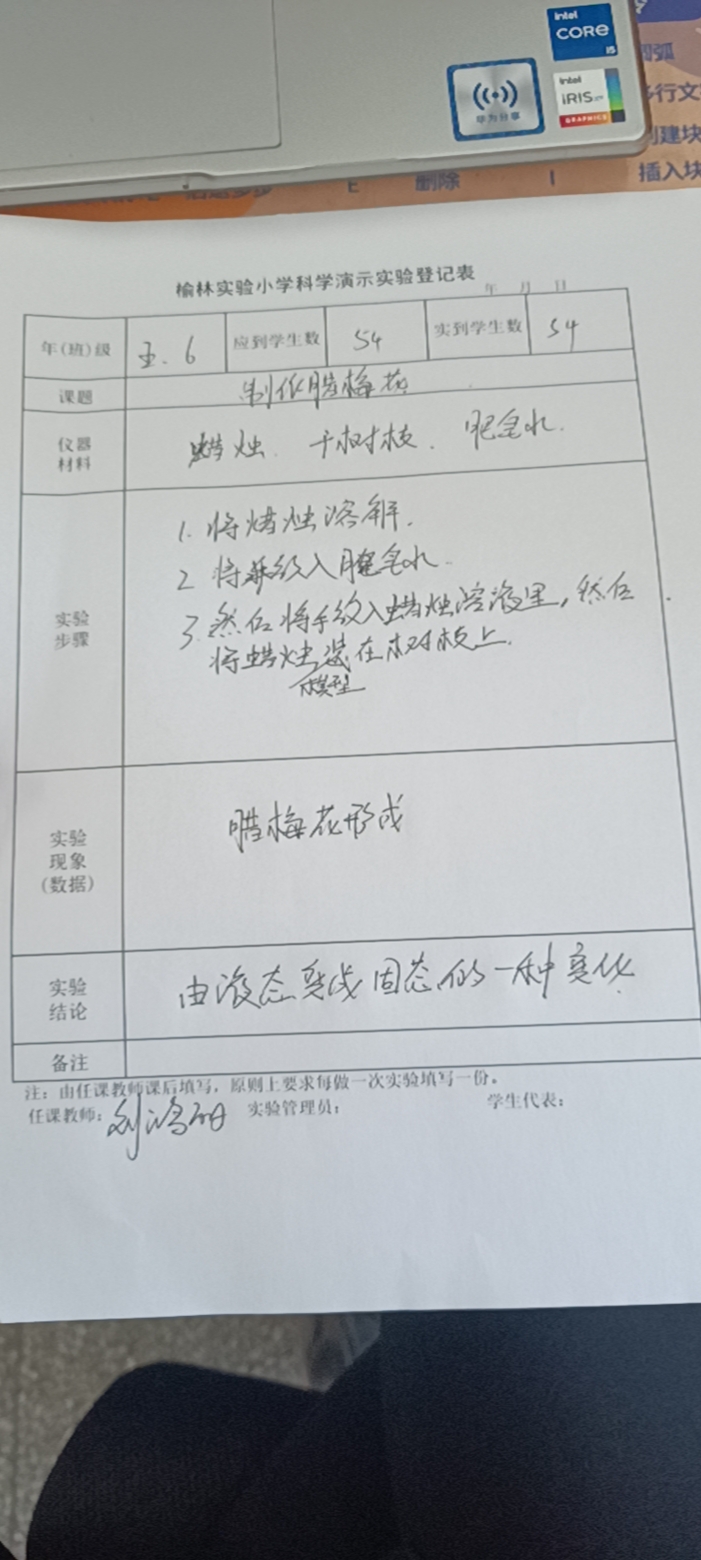 intel
CORE
i5
intel
iRIS xe
GRAPHICS
华为分享
圆弧
多行文
创建块
插入块
E 删除 I
榆林实验小学科学演示实验登记表
年 月 日
年(班)级 五.6 应到学生数 54 实到学生数 54
课题 制作腊梅花
仪器材料 蜡烛. 干树枝. 肥皂水.
实验步骤
1. 将蜡烛溶解.
2 将手放入肥皂水.
3. 然后将手放入蜡烛溶液里,然后
将蜡烛装在树枝上.
模型
实验现象(数据) 腊梅花形成
实验结论 由液态变成固态的一种变化
备注
注:由任课教师课后填写,原则上要求每做一次实验填写一份。
任课教师: 实验管理员: 学生代表: